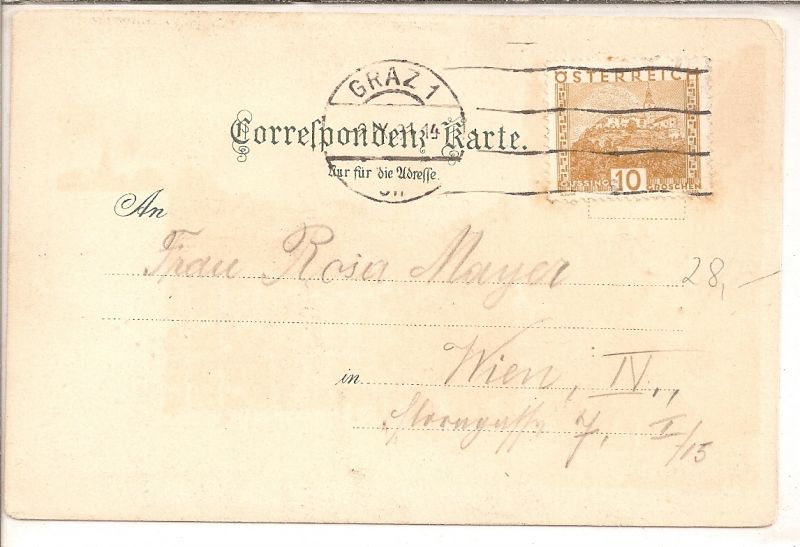 ÖSTERREICH
GRAZ 1
IV. 31. 14
Correspondenz-Karte.
Nur für die Adresse.
GÜSSING 10 GROSCHEN
An
Frau Rosa Mayer
28,-
in Wien, IV.,
7, I/15